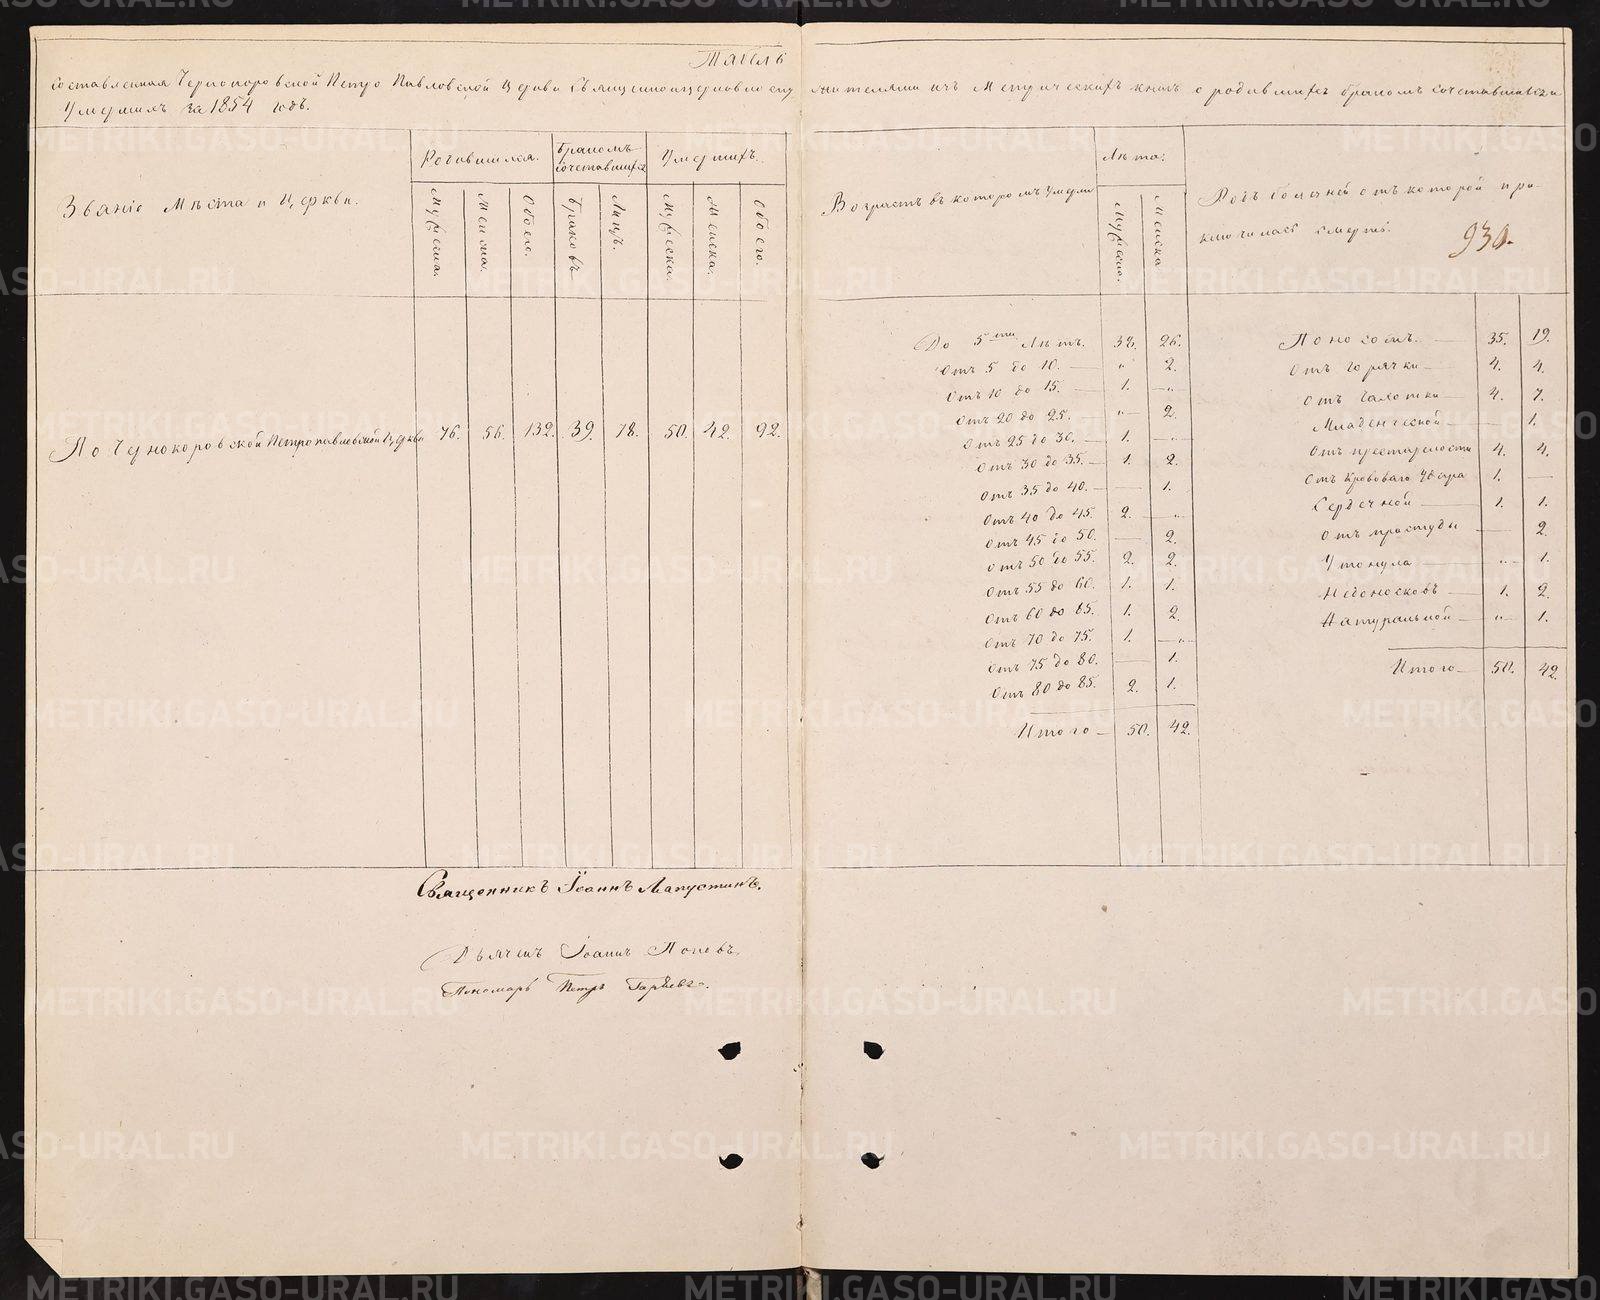 Табель
составленная Чернокоровской Петро Павловской Церкви Священноцерковнослу жителями изъ Метрическихъ книгъ о родившихся бракомъ сочетавшихся и
Умершихъ за 1854 годъ.
Званіе Мѣста и Церкви.
Родившихся.
Бракомъ сочетавшихся
Умершихъ.
Мужеска.
Женска.
Обоего.
Браковъ
Лицъ.
Мужеска.
Женска.
Обоего.
По Чернокоровской Петропавловской Церкви 76. 56. 132. 39. 78. 50. 42. 92.
Священникъ Іоаннъ Лапустинъ.
Дьячекъ Іоаннъ Поповъ.
Пономарь Петръ
Возрастъ въ которомъ умерли
Лѣта.
Мужеска.
Женска
Родъ болезней отъ которой при-
ключилась смерть.
930.
До 5ти Лѣтъ. 38. 26.
Отъ 5 до 10. — " 2.
Отъ 10 до 15. — 1. — "
Отъ 20 до 25. "— 2.
Отъ 25 до 30. — 1. —
Отъ 30 до 35. — 1. 2.
Отъ 35 до 40. — — 1.
Отъ 40 до 45. 2. — "
Отъ 45 до 50. — 2.
Отъ 50 до 55. 2. 2.
Отъ 55 до 60. 1. 1.
Отъ 60 до 65. 1. 2.
Отъ 70 до 75. 1. — "
Отъ 75 до 80. — 1.
Отъ 80 до 85. 2. 1.
Итого — 50. 42.
Поносомъ. — 35. 19.
Отъ горячки — 4. 4.
Отъ чахотки — 4. 7.
Младенческой — — 1.
Отъ престарелости 4. 4.
Отъ Кроваваго 1. —
Сердечной — 1. 1.
Отъ простуды — 2.
Утонула — " 1.
Недоносковъ — 1. 2.
Натуральной — " 1.
Итого — 50. 42.
METRIKI.GASO-URAL.RU